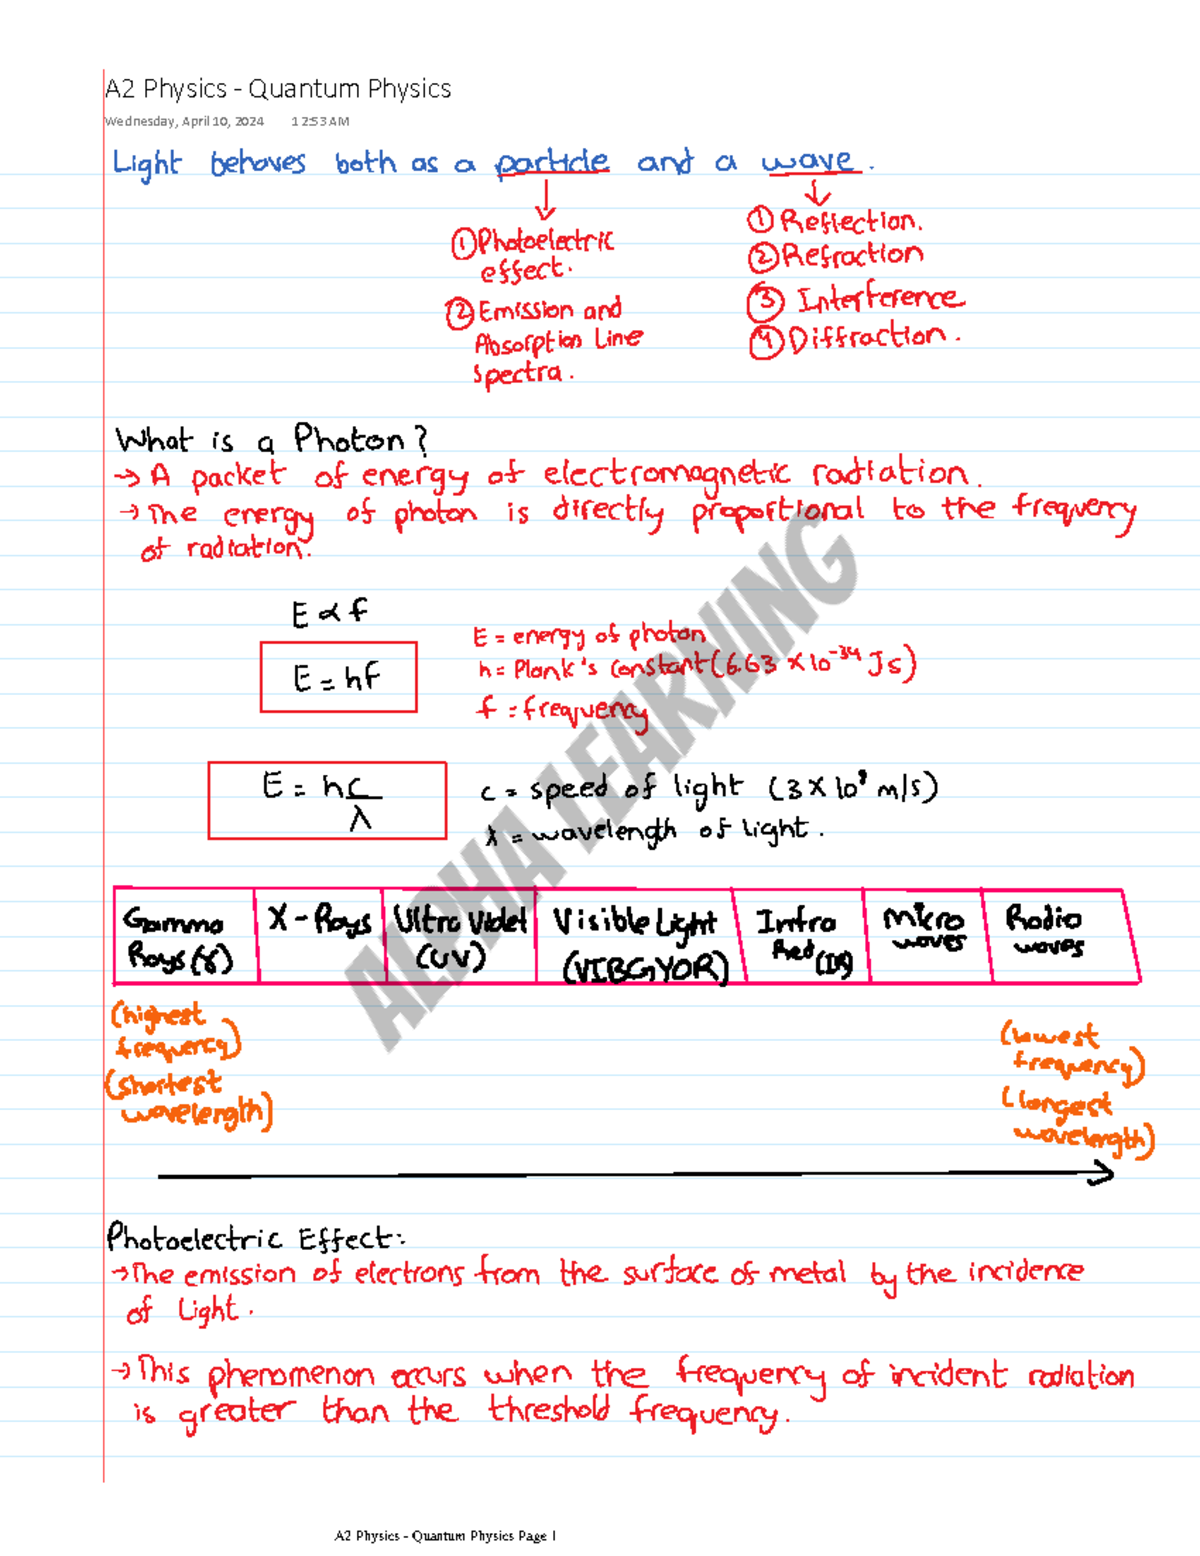 A2 Physics - Quantum Physics
Wednesday, April 10, 2024 12:53 AM
Light behaves both as a particle and a wave.
① Photoelectric
effect.
② Emission and
Absorption Line
Spectra.
① Reflection.
② Refraction
③ Interference
④ Diffraction.
What is a Photon?
→ A packet of energy of electromagnetic radiation.
→ The energy of photon is directly proportional to the frequency
of radiation.
E ∝ f
E = hf
E = energy of photon
h = Plank's constant (6.63 × 10⁻³⁴ Js)
f = frequency
E = hc/λ
c = speed of light (3 × 10⁸ m/s)
λ = wavelength of light.
Gamma
Rays (γ)
X-Rays
Ultra Violet
(UV)
Visible Light
(VIBGYOR)
Infra
Red (IR)
Micro
waves
Radio
waves
(highest
frequency)
(shortest
wavelength)
(lowest
frequency)
(longest
wavelength)
Photoelectric Effect:
→ The emission of electrons from the surface of metal by the incidence
of Light.
→ This phenomenon occurs when the frequency of incident radiation
is greater than the threshold frequency.
ALPHA LEARNING
A2 Physics - Quantum Physics Page 1